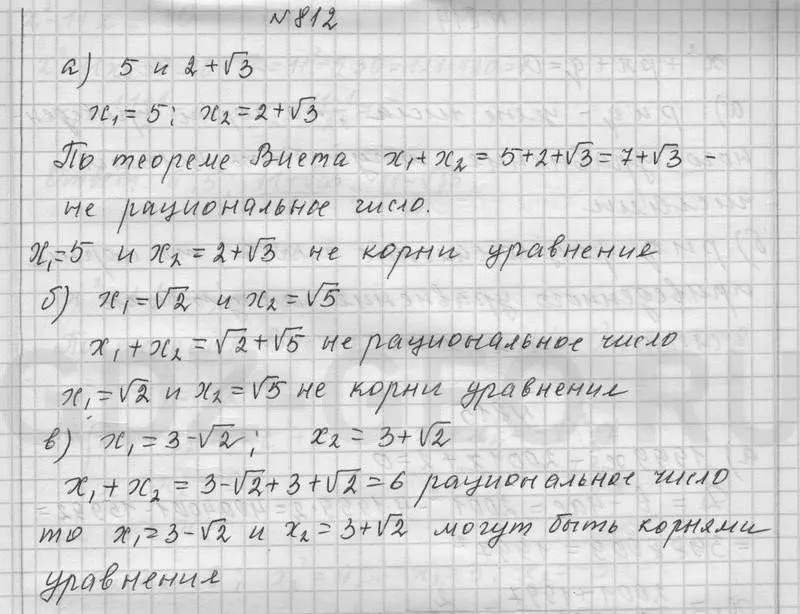 №812
а) 5 и 2+√3
x₁=5; x₂=2+√3
По теореме Виета x₁+x₂=5+2+√3=7+√3 –
не рациональное число.
x₁=5 и x₂=2+√3 не корни уравнения
б) x₁=√2 и x₂=√5
x₁+x₂=√2+√5 не рациональное число
x₁=√2 и x₂=√5 не корни уравнения
в) x₁=3-√2; x₂=3+√2
x₁+x₂=3-√2+3+√2=6 рациональное число
то x₁=3-√2 и x₂=3+√2 могут быть корнями
уравнения